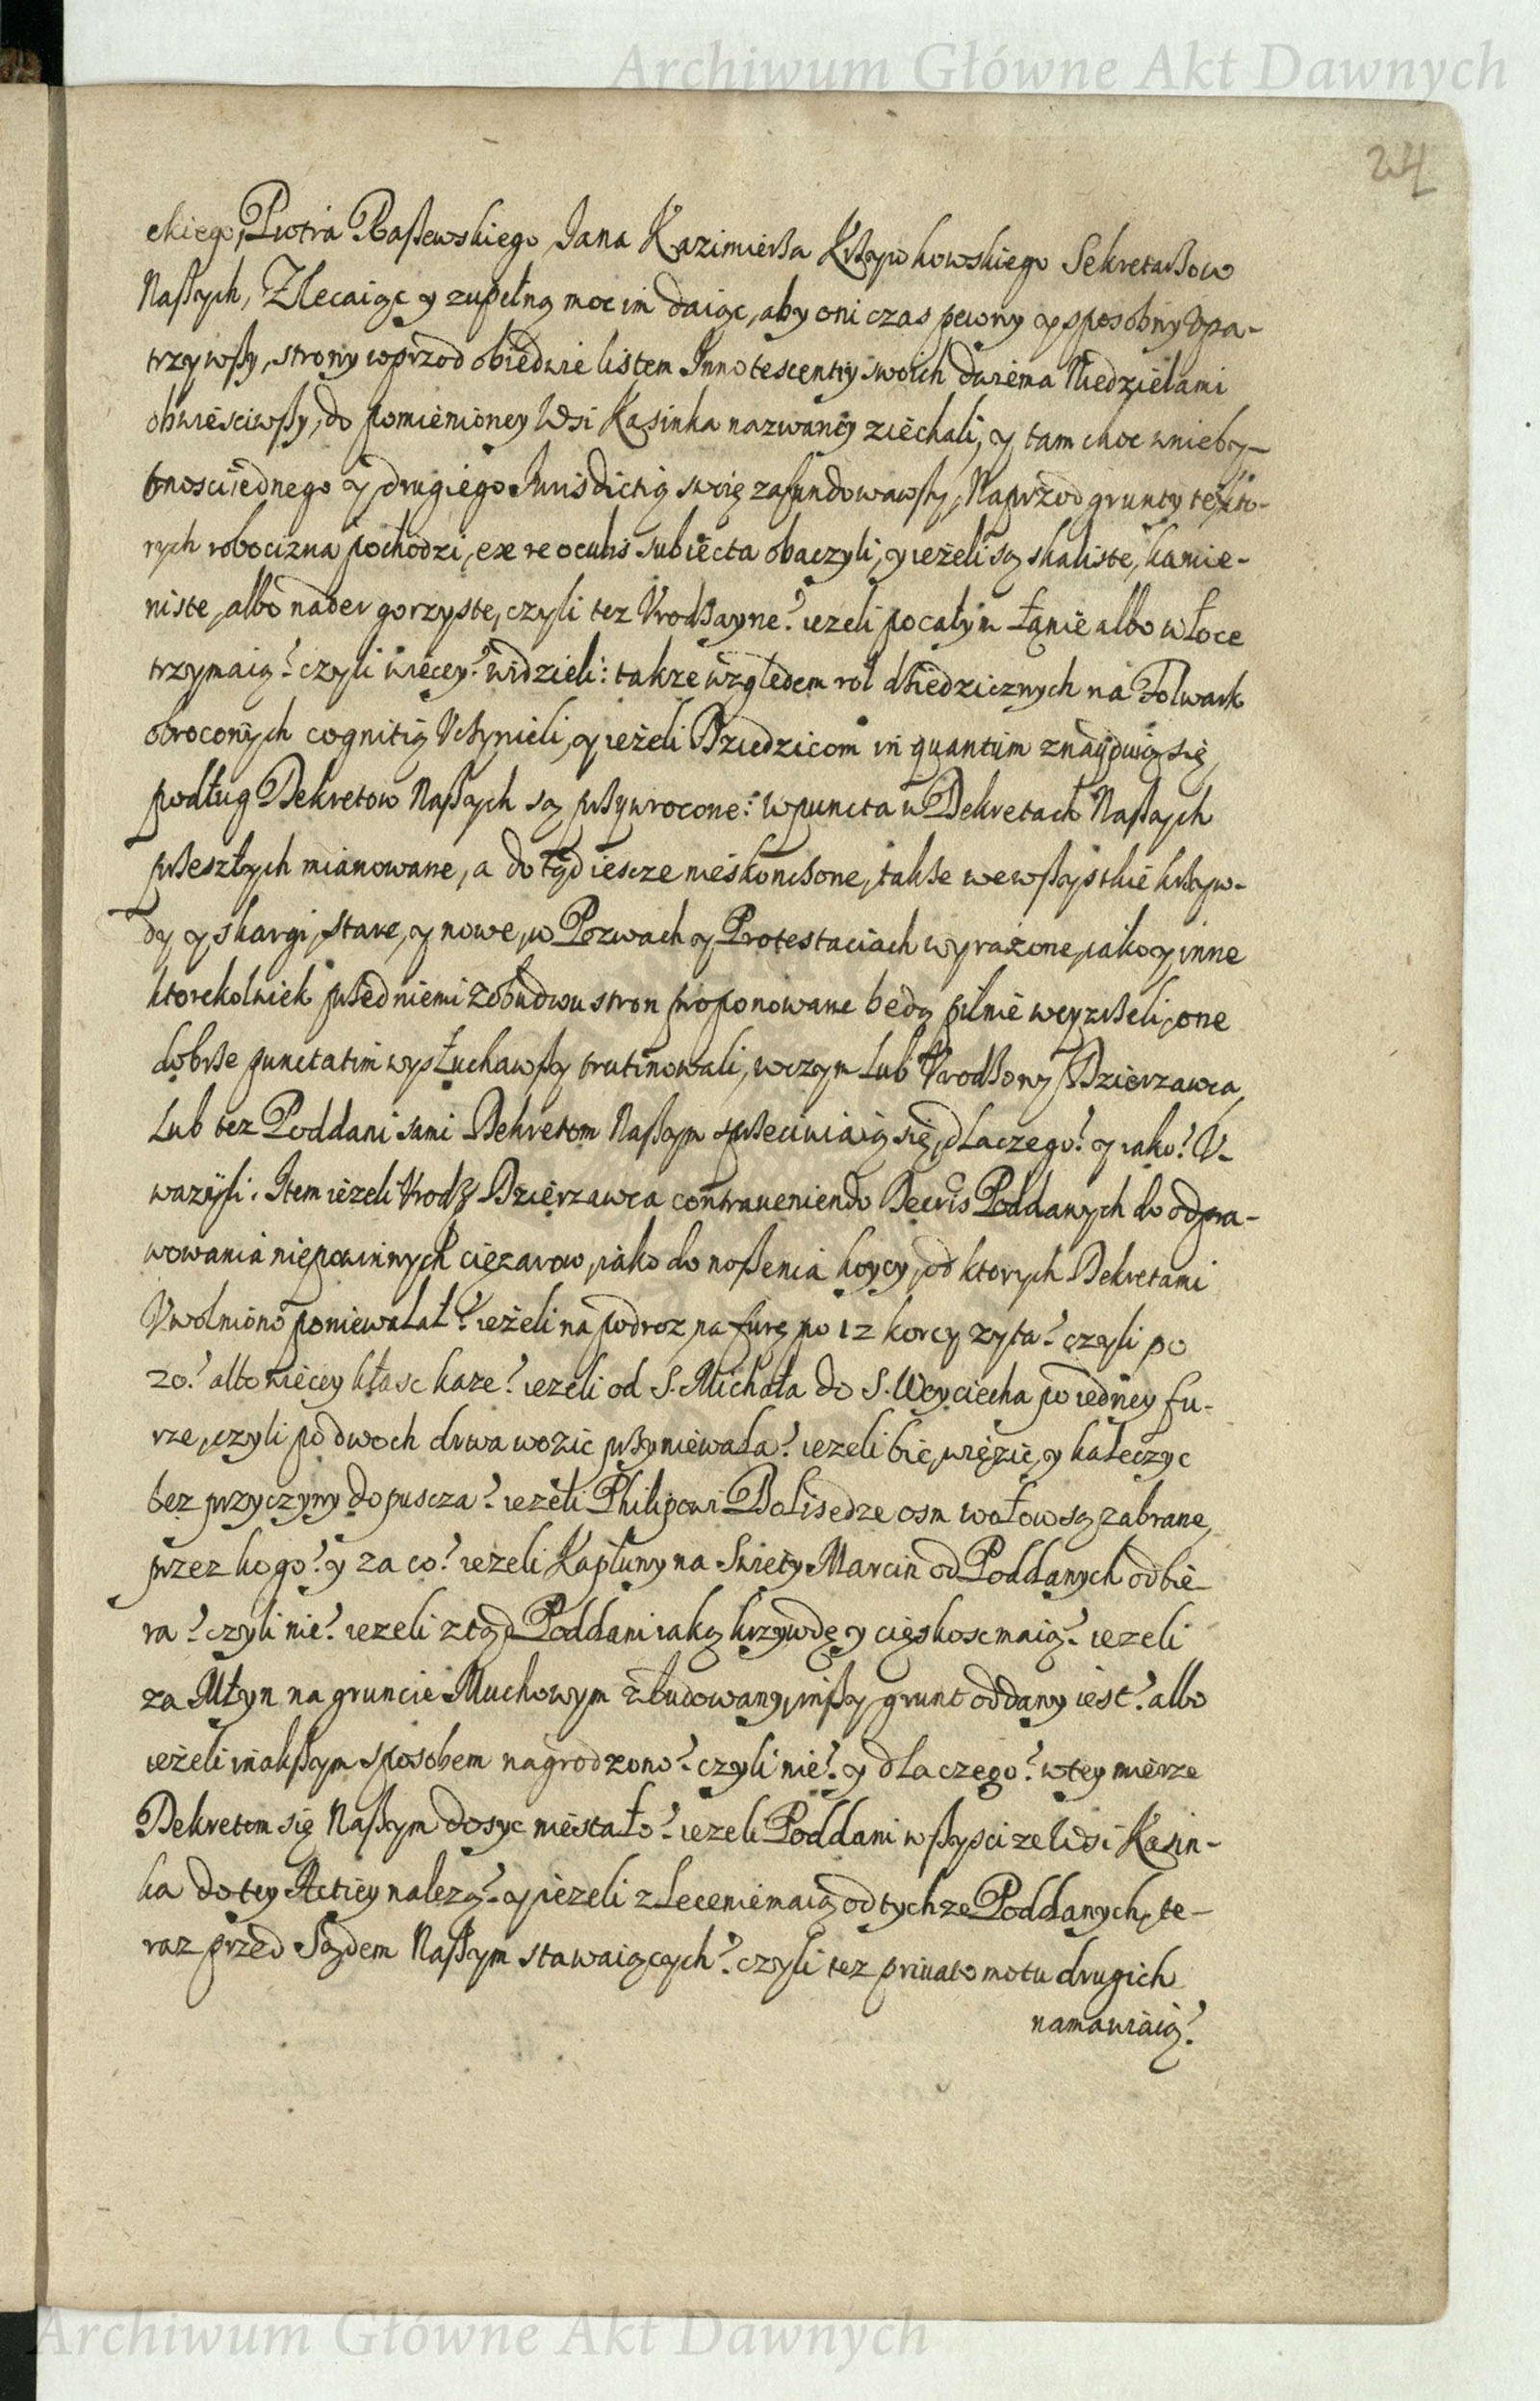 Archiwum Główne Akt Dawnych
24
ckiego, Piotra Raßewskiego Jana Kazimierßa Krßywkowskiego Sekretarßow
Naßych, Zlecaiąc y zupełną moc im daiąc, aby oni czas pewny y sposobny Vpa-
trzywßy, strony wprzod obiedwie listem Innotescentiy swoich dwiema Niedzielami
obwieściwßy, do pomienioney Wsi Kasinka nazwaney ziechali, y tam choc wnieby-
tnosci iednego y drugiego Iurisdictią swoię zafundowawßy, Naprzod grunty te, kto-
rych robocizna pochodzi, ex re oculis subiecta obaczyli, y ieżeli są skaliste, kamie-
niste, albo nader gorzyste, czyli tez Vrodßayne? iezeli po całym Łanie albo włoce
trzymaią? czyli więcey? widzieli: takze względem rol dźiedzicznych na Folwark
obroconych cognitią Vcßynieli, y ieżeli Dziedzicom in quantum znayduią się,
podług Dekretow Naßych są prßywrocone: w puncta w Dekretach Naßych
prßeszłych mianowane, a dotąd iescze nieskoncßone, takße we wßystkie krßyw-
dy y skargi, stare, y nowe, w Pozwach y Protestaciach wyrażone, iako y inne
ktorekolwiek prßed niemi z obudwu stron proponowane będą pilnie weyzrßeli, one
dobrße punctatim wysłuchawßy trutinowali, w czym lub Vrodßony Dzierzawca,
Lub tez Poddani sami Dekretom Naßym sprßeciwiaią się, dlaczego? y iako? V-
wazyli. Item ieżeli Vrodß Dzierzawca contraueniendo Decris Poddanych do odpra-
wowania niepowinnych cięzarow, iako do noßenia korcy, od ktorych Dekretami
Vwolniono poniewalał? ieżeli na podroz na furę po 12 korcy zyta? czyli po
20? albo więcey kłasc kaze? iezeli od S. Michała do S. Woyciecha po iedney fu-
rze, czyli po dwoch drwa wozić prßyniewala? iezeli bic, więzic, y kaleczyc
bez przyczyny dopuscza? iezeli Philipowi Bolisedze osm wołow są zabrane,
przez kogo? y za co? iezeli Kapłuny na Swięty Marcin od Poddanych odbie-
ra? czyli nie? iezeli ztąd Poddani iaką krzywdę y cięskosc maią? iezeli
za Młyn na gruncie Muchowym zbudowany, inßy grunt oddany iest? albo
ieżeli inakßym sposobem nagrodzono? czyli nie? y dlaczego? w tey mierze
Dekretom się Naßym dosyc niestało? iezeli Poddani wßyscy ze Wsi Kasin-
ka do tey Actiey nalezą? y iezeli zlecenie maią od tychze Poddanych, te-
raz przed Sądem Naßym stawaiących? czyli tez priuato motu drugich
namawiaią?
Archiwum Główne Akt Dawnych